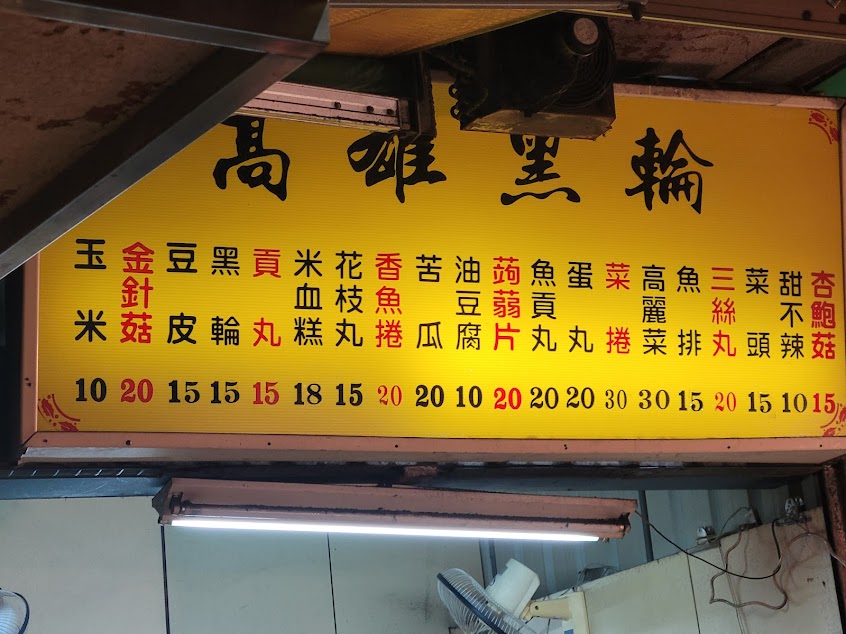 高雄黑輪
玉米 10
金針菇 20
豆皮 15
黑輪 15
貢丸 15
米血糕 18
花枝丸 15
香魚捲 20
苦瓜 20
油豆腐 10
蒟蒻片 20
魚貢丸 20
蛋丸 20
菜捲 30
高麗菜 30
魚排 15
三絲丸 20
菜頭 15
甜不辣 10
杏鮑菇 15